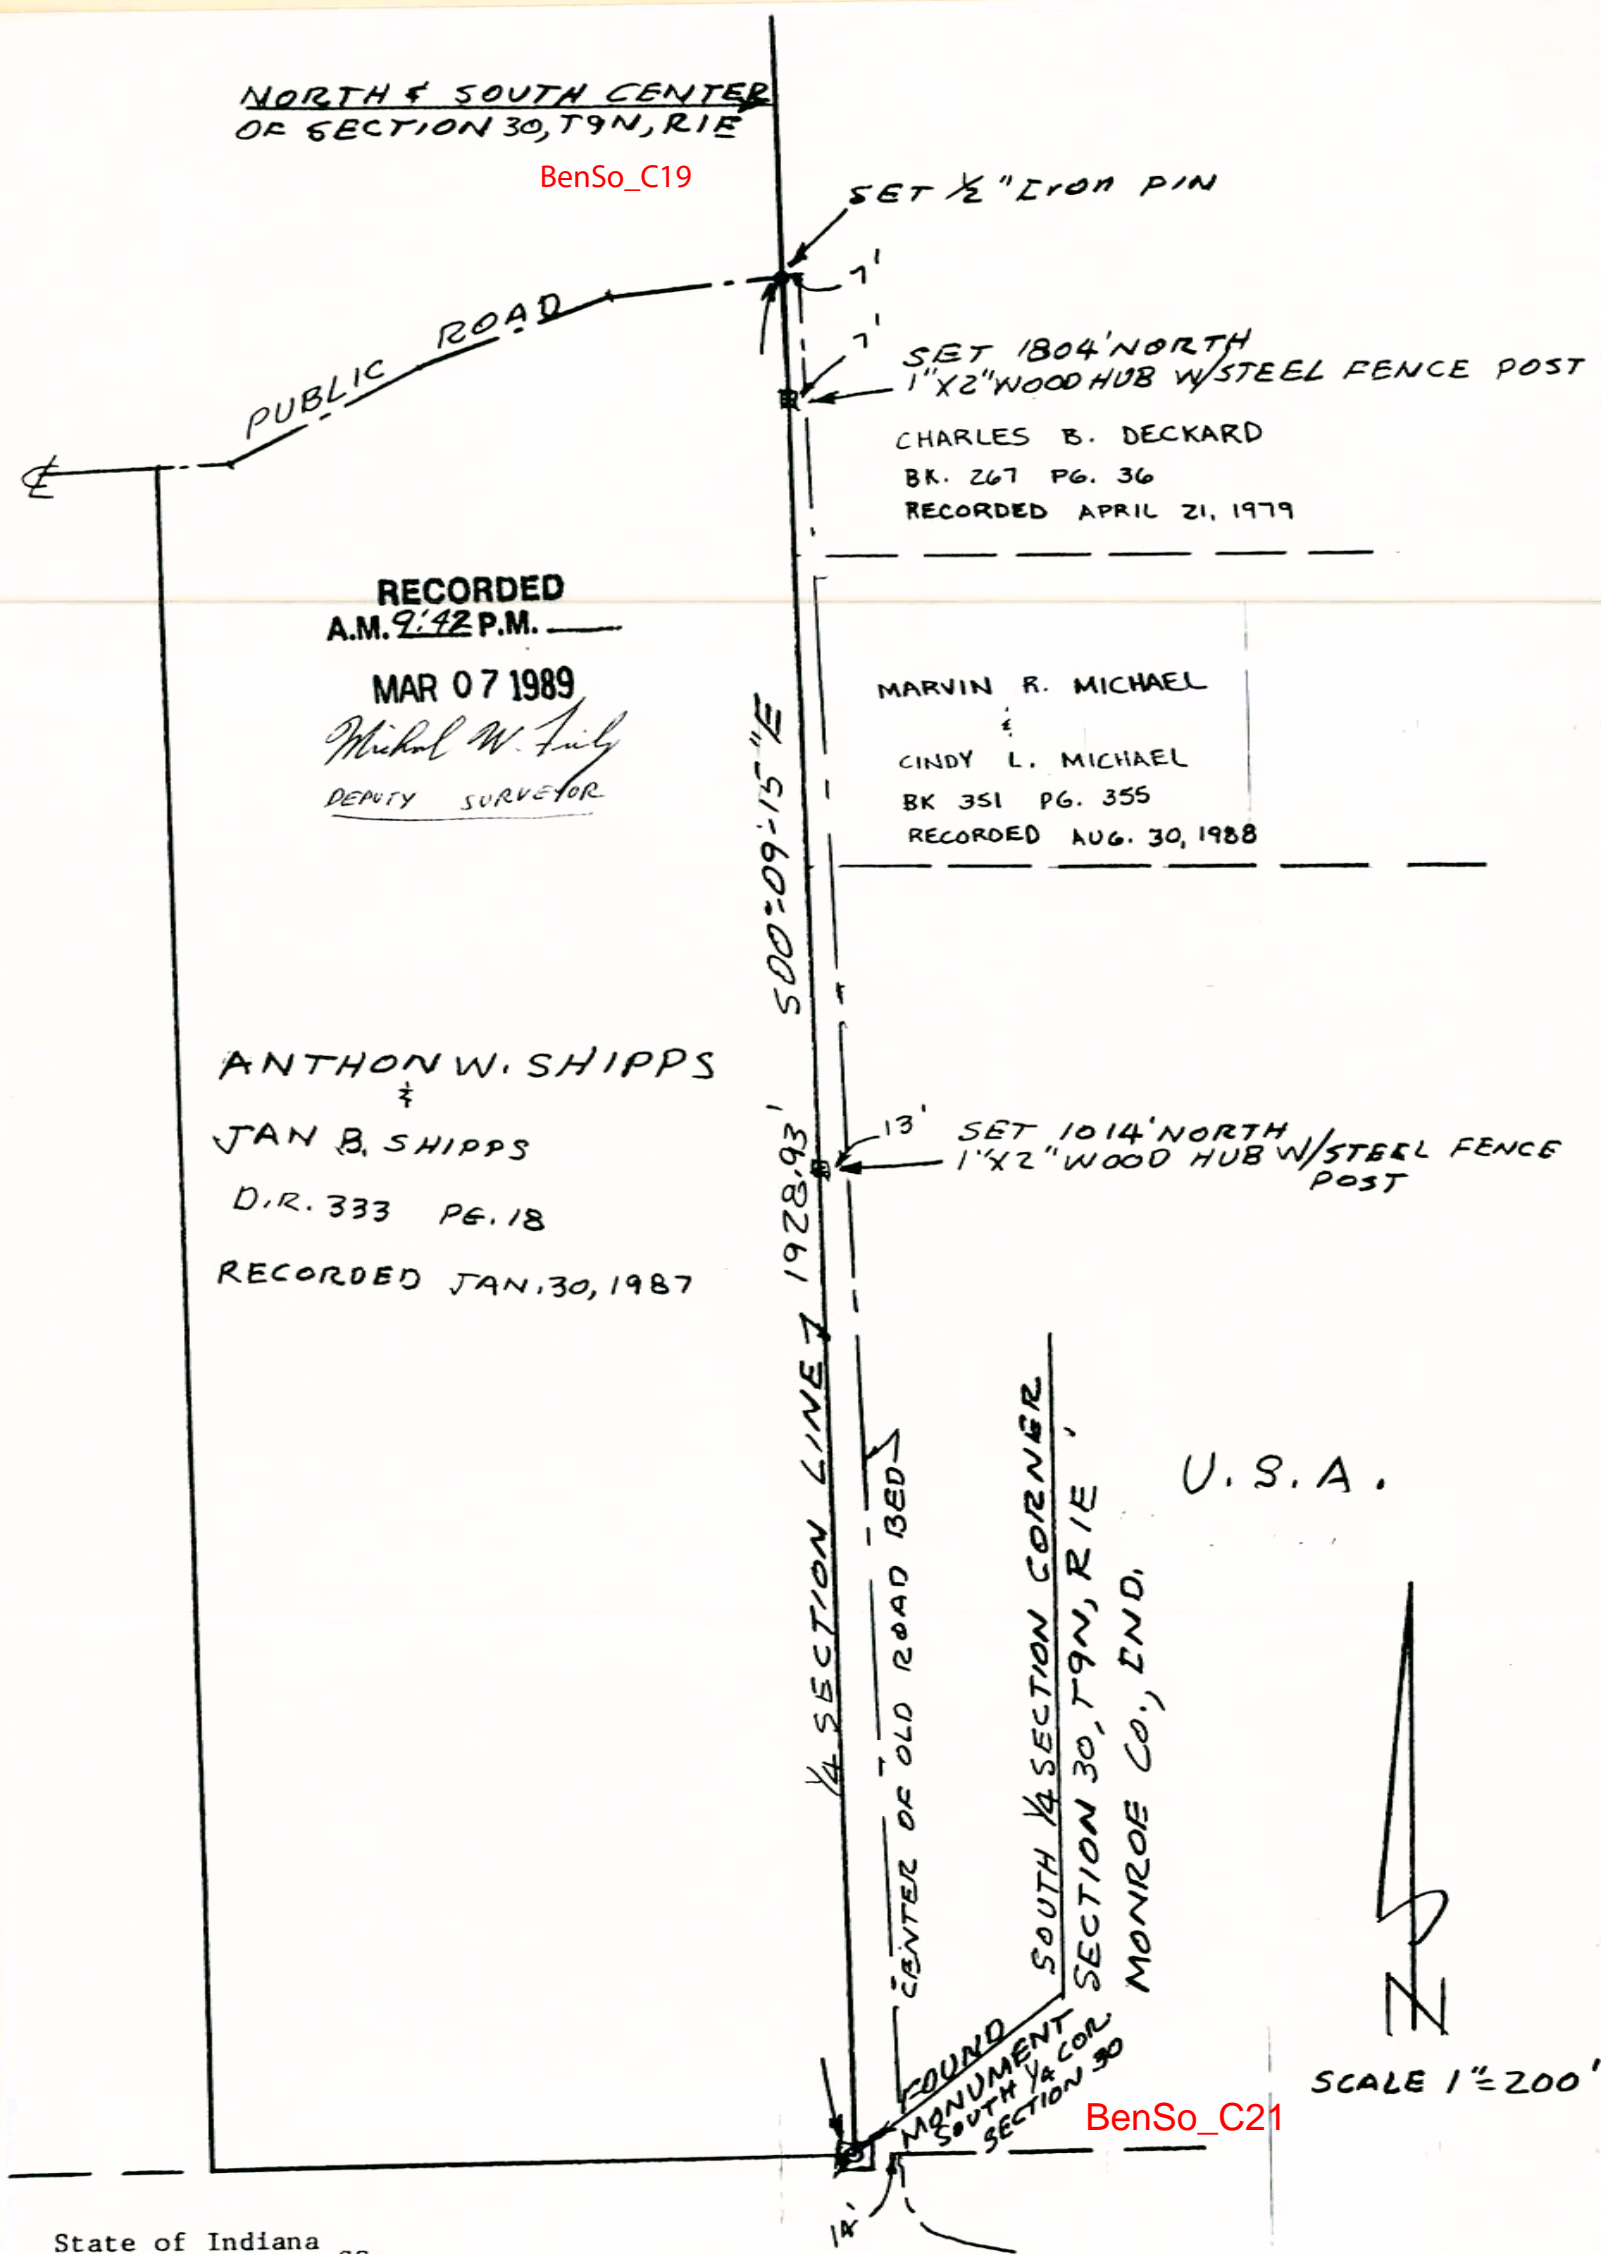 NORTH & SOUTH CENTER
OF SECTION 30, T9N, R1E
BenSo_C19
SET 1/2" Iron PIN
7'
7'
PUBLIC ROAD
SET 1804' NORTH
1"X2" WOOD HUB W/STEEL FENCE POST
CHARLES B. DECKARD
BK. 267 PG. 36
RECORDED APRIL 21, 1979
℄
RECORDED
A.M. 9:42 P.M.
MAR 07 1989
DEPUTY SURVEYOR
MARVIN R. MICHAEL
&
CINDY L. MICHAEL
BK 351 PG. 355
RECORDED AUG. 30, 1988
S00°-09'-15"E
1928.93'
1/4 SECTION LINE
ANTHON W. SHIPPS
&
JAN B. SHIPPS
D.R. 333 PG. 18
RECORDED JAN. 30, 1987
13'
SET 1014' NORTH
1"X2" WOOD HUB W/STEEL FENCE
POST
CENTER OF OLD ROAD BED
SOUTH 1/4 SECTION CORNER
SECTION 30, T9N, R1E
MONROE CO., IND.
U.S.A.
N
SCALE 1"=200'
FOUND
MONUMENT
SOUTH 1/4 COR.
SECTION 30
BenSo_C21
14'
State of Indiana